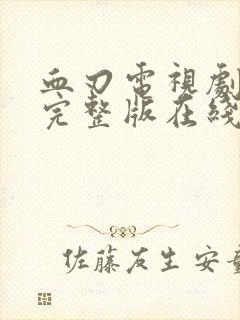 血刃電視劇
完整版在綫
佐藤友生 安童